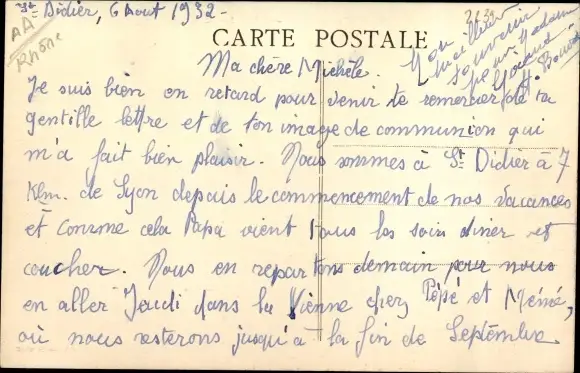 St Didier, 6 Aout 1932-
AA
Rhône
CARTE POSTALE
Mon
meilleur
souvenir
pour Madame
Ma chère Michèle.
Je suis bien en retard pour venir te remercier de ta
gentille lettre et de ton image de communion qui
m'a fait bien plaisir. Nous sommes à St Didier à 7
Klm. de Lyon depuis le commencement de nos vacances
et comme cela Papa vient tous les soirs diner et
coucher. Nous en repartons demain pour nous
en aller Jeudi dans la Vienne chez Pépé et Mémé,
où nous resterons jusqu'à la fin de Septembre.